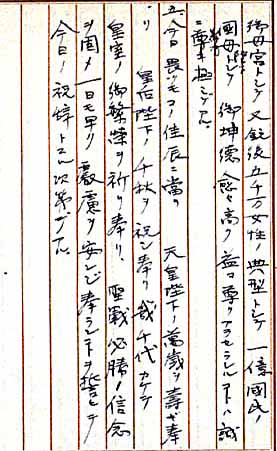 御母宮トシテ 又銃後五千万女性ノ典型トシテ 一億國民ノ
國母トシテ 御坤徳愈々高ク益々尊クアラセラルルコトハ誠
ニ畏キ極ミデアル
五、今日畏クモコノ佳辰ニ當リ 天皇陛下ノ萬歳ヲ壽ギ奉
リ 皇后陛下ノ千秋ヲ祝シ奉リ 八千代カケテ
皇室ノ御繁榮ヲ祈リ奉リ、聖戰必勝ノ信念
ヲ固メ一日モ早ク 叡慮ヲ安ンジ奉ランコトヲ誓ヒテ
今日ノ祝辭トスル次第デアル